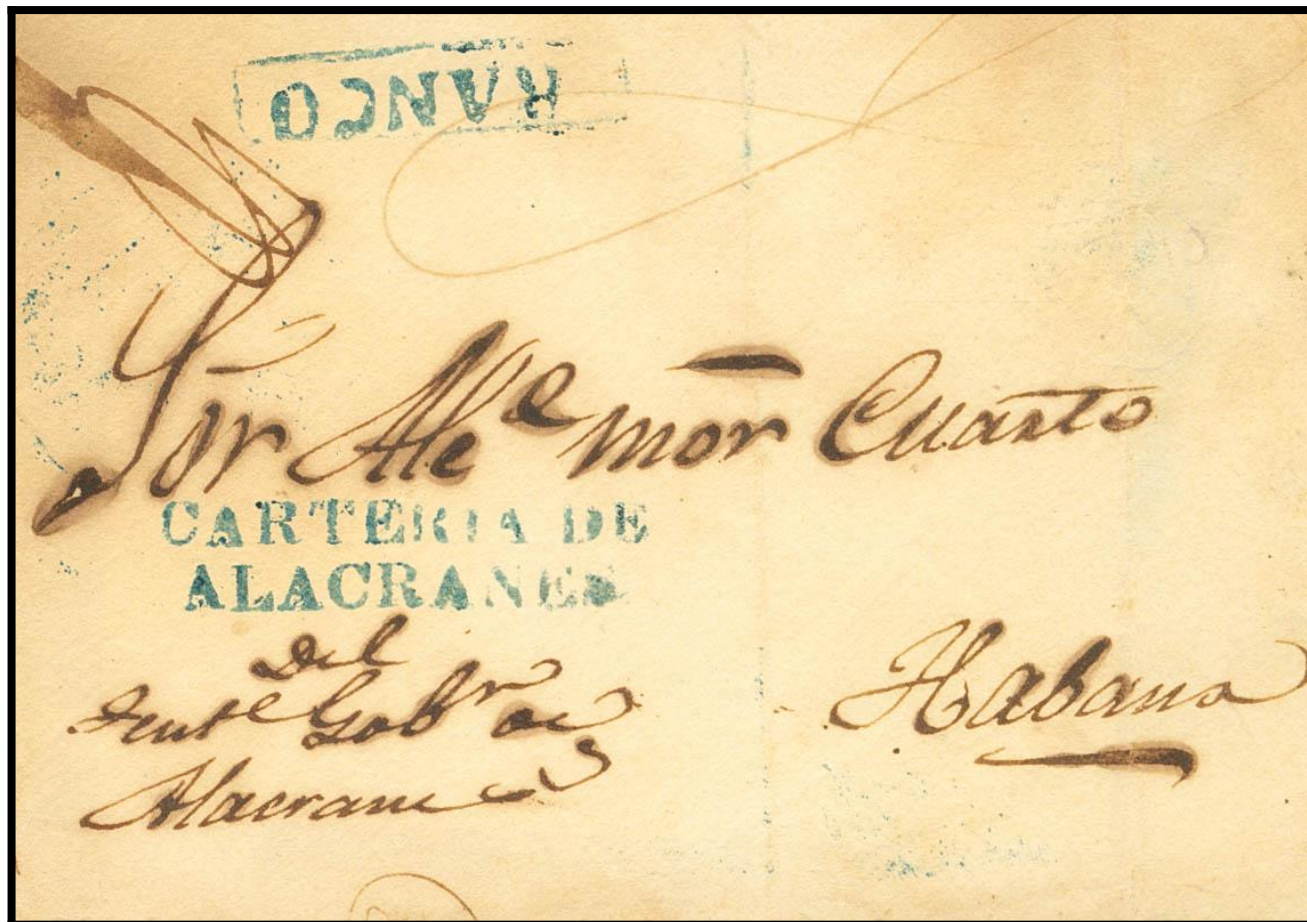 RANCO
Sor Alce mor Cuarto
CARTERIA DE
ALACRANES
Del
Tente Gobr de
Alacranes
Habana